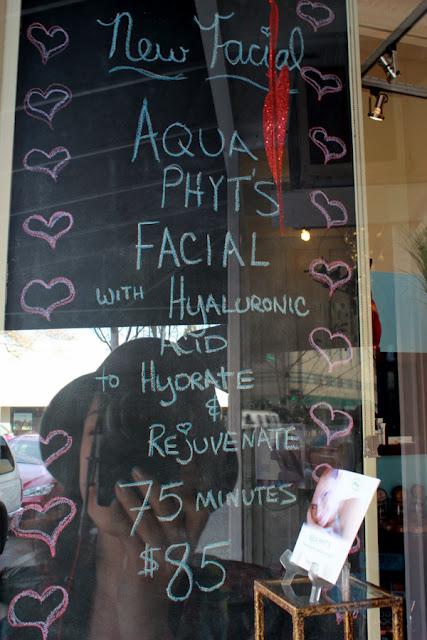 New Facial
AQUA
PHYT'S
FACIAL
WITH HYALURONIC
ACID
to HYDRATE
&
REJUVENATE
75 MINUTES
$85